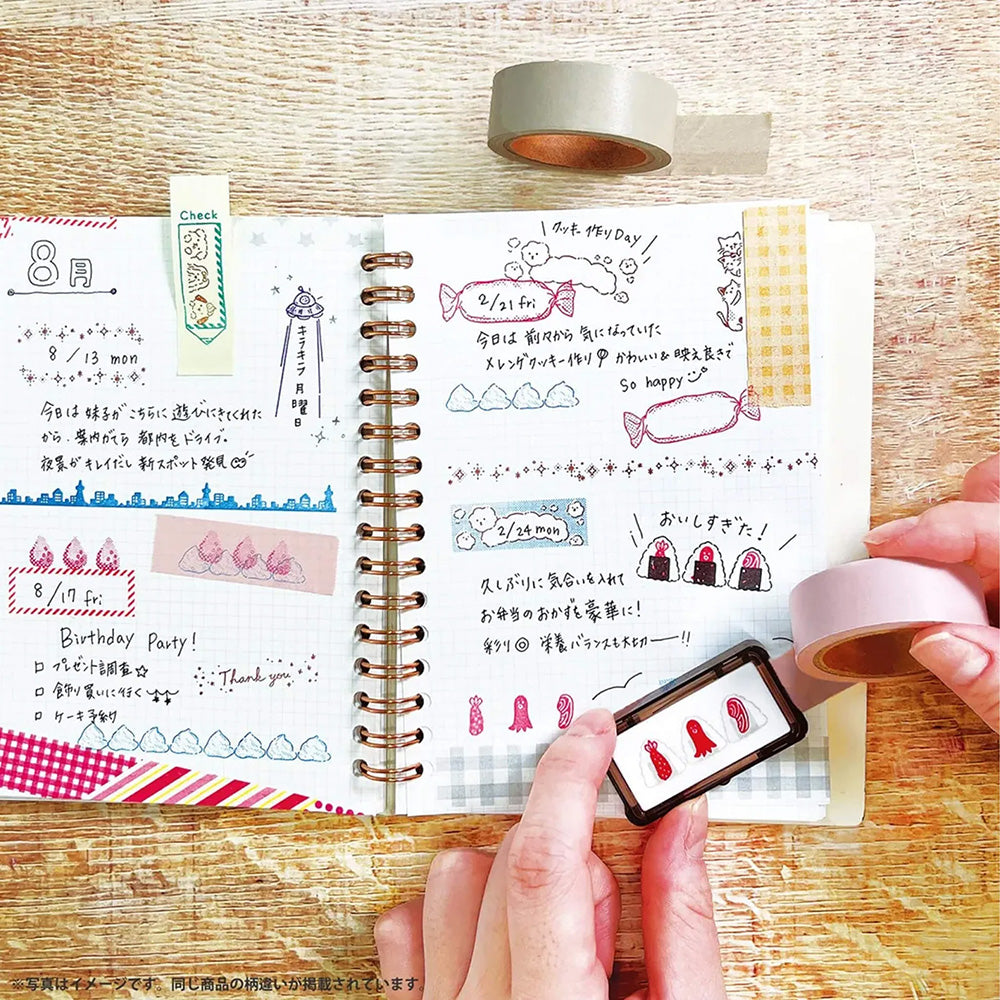 Check
8月
8/13 mon
今日は妹子がこちらに遊びにきてくれた
から、案内がてら都内をドライブ。
夜景がキレイだし新スポット発見
キラキラ月曜日
8/17 fri
Birthday Party!
プレゼント調査☆
飾り買いに行く
ケーキ予約
Thank you
クッキー作りDay
2/21 fri
今日は前々から気になっていた
メレンゲクッキー作り かわいい&映え良きで
So happy
2/24 mon
おいしすぎた!
久しぶりに気合いを入れて
お弁当のおかずを豪華に!
彩り◎ 栄養バランスも大切ー!!
※写真はイメージです。同じ商品の柄違いが掲載されています。